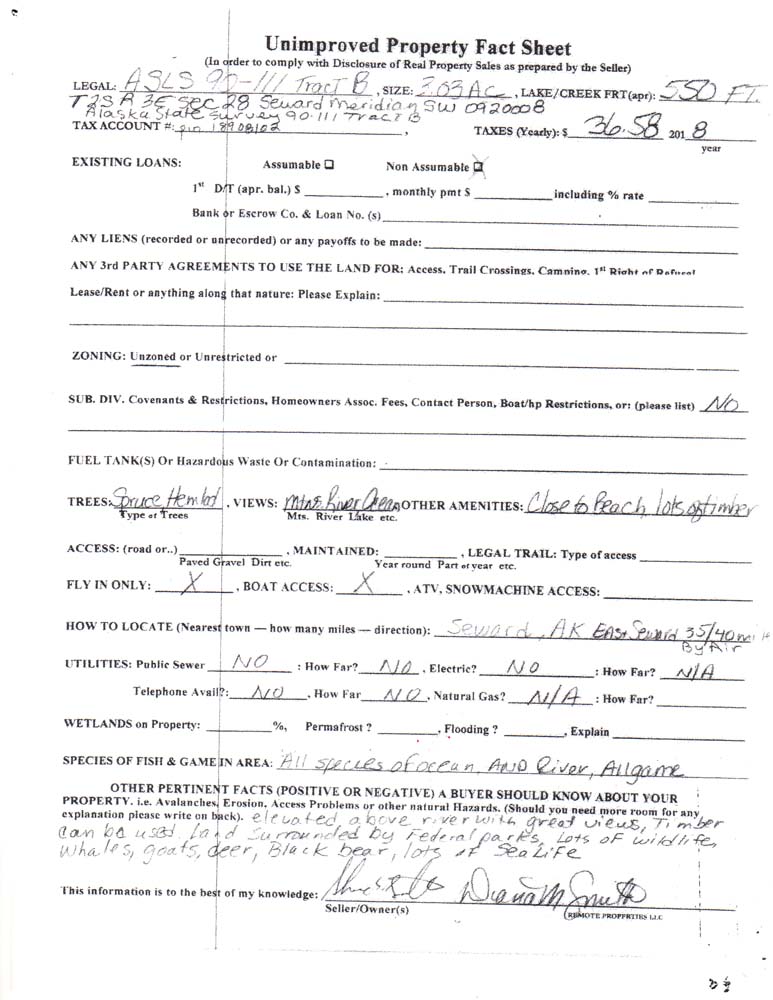 Unimproved Property Fact Sheet
(In order to comply with Disclosure of Real Property Sales as prepared by the Seller)
LEGAL: ASLS 90-111 Tract B, SIZE: 3.03 AC, LAKE/CREEK FRT(apr): 550 FT.
T2S R 3E Sec 28 Seward Meridian SW 0920008
Alaska State Survey 90-111 Tract B
TAX ACCOUNT #: pin 18908102, TAXES (Yearly): $ 36.58 2018
year
EXISTING LOANS: Assumable ☐ Non Assumable ☒
1st D/T (apr. bal.) $ , monthly pmt $ including % rate
Bank or Escrow Co. & Loan No. (s)
ANY LIENS (recorded or unrecorded) or any payoffs to be made:
ANY 3rd PARTY AGREEMENTS TO USE THE LAND FOR: Access, Trail Crossings, Camping, 1st Right of Refusal
Lease/Rent or anything along that nature: Please Explain:
ZONING: Unzoned or Unrestricted or
SUB. DIV. Covenants & Restrictions, Homeowners Assoc. Fees, Contact Person, Boat/hp Restrictions, or: (please list) NO
FUEL TANK(S) Or Hazardous Waste Or Contamination:
TREES: Spruce Hemlock, VIEWS: Mtns River Ocean OTHER AMENITIES: Close to Beach lots of timber
Type of Trees Mts. River Lake etc.
ACCESS: (road or..) , MAINTAINED: , LEGAL TRAIL: Type of access
Paved Gravel Dirt etc. Year round Part of year etc.
FLY IN ONLY: X , BOAT ACCESS: X , ATV, SNOWMACHINE ACCESS:
HOW TO LOCATE (Nearest town — how many miles — direction): Seward, AK East Seward 35/40 mi
By Air
UTILITIES: Public Sewer NO : How Far? NO , Electric? NO : How Far? N/A
Telephone Avail?: NO , How Far NO , Natural Gas? N/A : How Far?
WETLANDS on Property: %, Permafrost ? , Flooding ? , Explain
SPECIES OF FISH & GAME IN AREA: All species of ocean AND River, All game
OTHER PERTINENT FACTS (POSITIVE OR NEGATIVE) A BUYER SHOULD KNOW ABOUT YOUR
PROPERTY. i.e. Avalanches, Erosion, Access Problems or other natural Hazards. (Should you need more room for any
explanation please write on back). elevated above river with great views, Timber
can be used. Land Surrounded by Federal parks, Lots of wildlife,
Whales, goats, deer, Black bear, lots of Sea Life
This information is to the best of my knowledge: Diana M Smith
Seller/Owner(s) (REMOTE PROPERTIES LLC